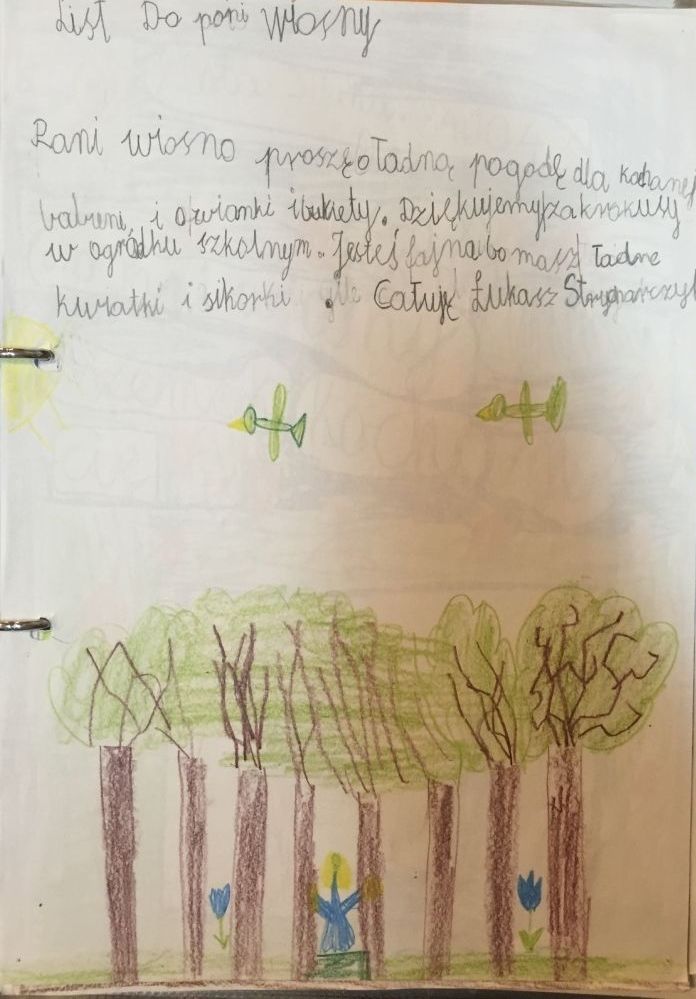 List Do pani Wiosny
Pani wiosno proszę o ładną pogodę dla kochanej
i owianki i bukiety. Dziękujemy za krokusy
w ogródku szkolnym. Jesteś fajna bo masz ładne
kwiatki i sikorki. Całuję Łukasz